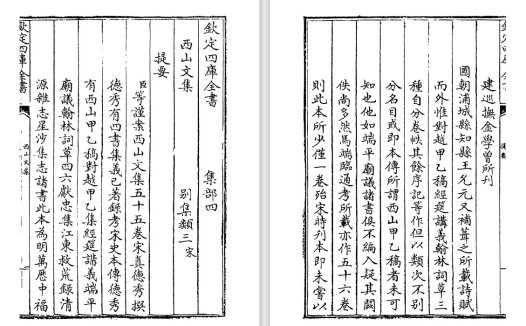 欽定四庫全書　集部四
西山文集　別集類三宋
提要
臣等謹案西山文集五十五卷宋真德秀撰
德秀有四書集義已著錄考宋史本傳德秀
有西山甲乙稿對越甲乙集經筵講義端平
廟議翰林詞草四六獻忠集江東救荒錄清
源雜志星沙集志諸書此本為明萬厯中福
欽定四庫全書
西山文集
建巡撫金學曾所刋
國朝浦城縣知縣王允元又補葺之所載詩賦
而外惟對越甲乙稿經筵講義翰林詞草三
種自分卷帙其餘序記等作但以類次不别
分名目或即本傳所謂西山甲乙稿者未可
知也他如端平廟議諸書俱不編入疑其闕
佚尚多然馬端臨通考所載亦作五十六卷
則此本所少僅一卷殆宋時刋本即未嘗以